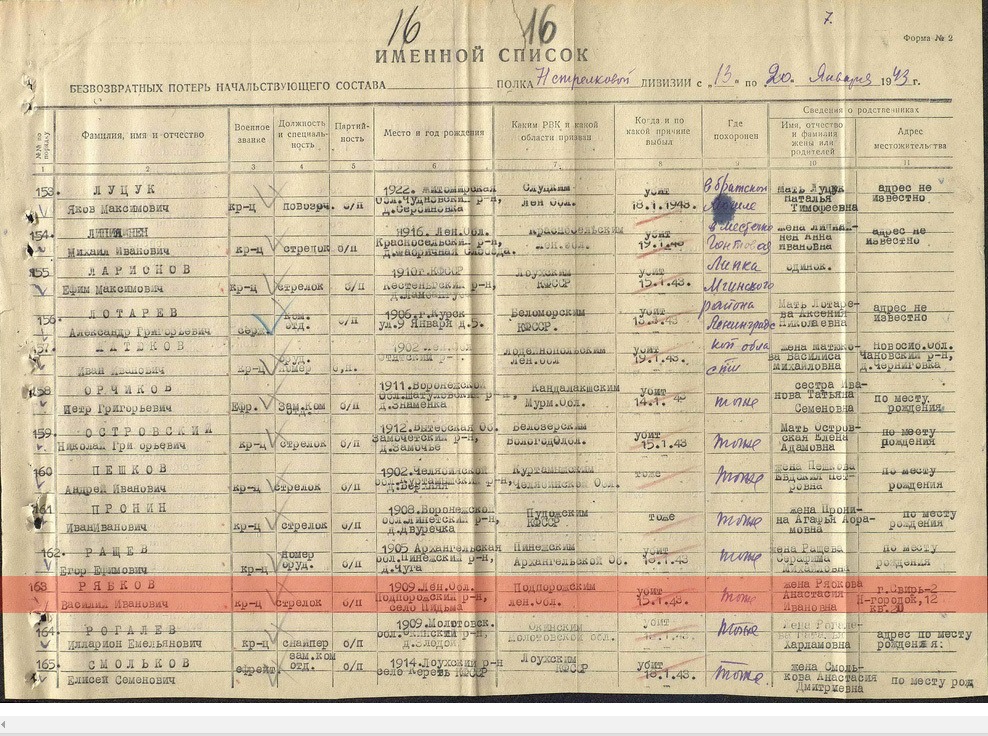 16 16
7.
Форма № 2
ИМЕННОЙ СПИСОК
БЕЗВОЗВРАТНЫХ ПОТЕРЬ НАЧАЛЬСТВУЮЩЕГО СОСТАВА ПОЛКА стрелковой ДИВИЗИИ с „13" по 20. Января 1943 г.
№№ по порядку
Фамилия, имя и отчество
Военное звание
Должность и специальность
Партийность
Место и год рождения
Каким РВК и какой области призван
Когда и по какой причине выбыл
Где похоронен
Сведения о родственниках
Имя, отчество и фамилия жены или родителей
Адрес местожительства
1 2 3 4 5 6 7 8 9 10 11
153. ЛУЦУК 1922. Житомирская Слуцким убит в братской мать Луцук адрес не
Яков Максимович кр-ц повозч. б/п обл. Чудновский р-н, Лен обл. 18.1.1943. могиле Наталья Тимофеевна известно
154. кр-ц стрелок б/п 1916. Лен.Обл. Красносельским убит в местечке жена адрес не
Михаил Иванович Красносельский р-н, Лен.обл. 19.1.43 Анна Ивановна известно
155. ЛАРИОНОВ 1910г.КФССР Лоухским убит Липка одинок.
Ефим Максимович кр-ц стрелок б/п Кестеньгский р-н, КФССР 15.1.43. Мгинского
156. ЛОТАРЕВ ком. отд. 1906.г.Курск Беломорским убит района Мать Лотарева Аксения адрес не
Александр Григорьевич серж. б/п ул.9 Января д.5. КФССР. Ленинградс Николаевна известно
157. 1902 Лен.обл. Лодейнопольским убит кой обла жена Новосиб.Обл.
Иван Иванович кр-ц номер Лен.обл 19.1.43. сти Василиса Михайловна Чановский р-н, д.Черниговка
158 ОРЧИКОВ 1911.Воронежской Кандалакшским убит сестра Иванова Татьяна по месту
Петр Григорьевич Ефр. Зам.Ком б/п д.Знаменка Мурм.Обл. 14.1. 43 тоже Семеновна рождения
159. ОСТРОВСКИЙ 1912. Белозерским убит Мать Островская Елена по месту
Николай Григорьевич кр-ц стрелок б/п д.Замочье Вологодобл. 15.1.43 тоже Адамовна рождения
160 ПЕШКОВ 1902.Челябинской Куртамышским тоже жена Пешкова по месту
Андрей Иванович кр-ц стрелок б/п обл.Куртамышский р-н, Челябинской Обл. тоже Евдокия Петровна рождения
161 ПРОНИН 1908.Воронежской Пудожским жена Пронина Агарья по месту
ИванИванович кр-ц стрелок б/п д.Двуречка КФССР тоже тоже рождения
162. РАЩЕВ номер оруд. 1905 Архангельская Пинежским убит жена Ращева по месту
Егор Ефимович кр-ц б/п обл.Пинежский р-н, д.Чуга Архангельской Об. 18.1.43. тоже Серафима Михайловна рождения
163 РЯБКОВ 1909.Лен.Обл. Подпорожским убит жена Рябкова г.Свирь-2
Василий Иванович кр-ц стрелок б/п Подпорожский р-н, село Пидьма Лен.Обл. 15.1.43. тоже Анастасия Ивановна П-городок,12 кв.20
164. РОГАЛЕВ 1909.Молотовск. убит жена
Илларион Емельянович кр-ц снайпер б/п Молотовской обл. 18.1.43. тоже Харламовна адрес по месту рождения:
165. СМОЛЬКОВ зам.ком отд. 1914.Лоухский р-н Лоухским убит жена Смолькова Анастасия
Елисей Семенович ефрейт. б/п село Кереть КФССР КФССР 18.1.43. тоже. Дмитриевна по месту рожд